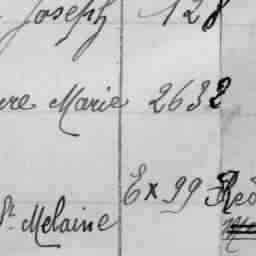 Joseph 128
re Marie 2632
St Melaine Ex 99 Red